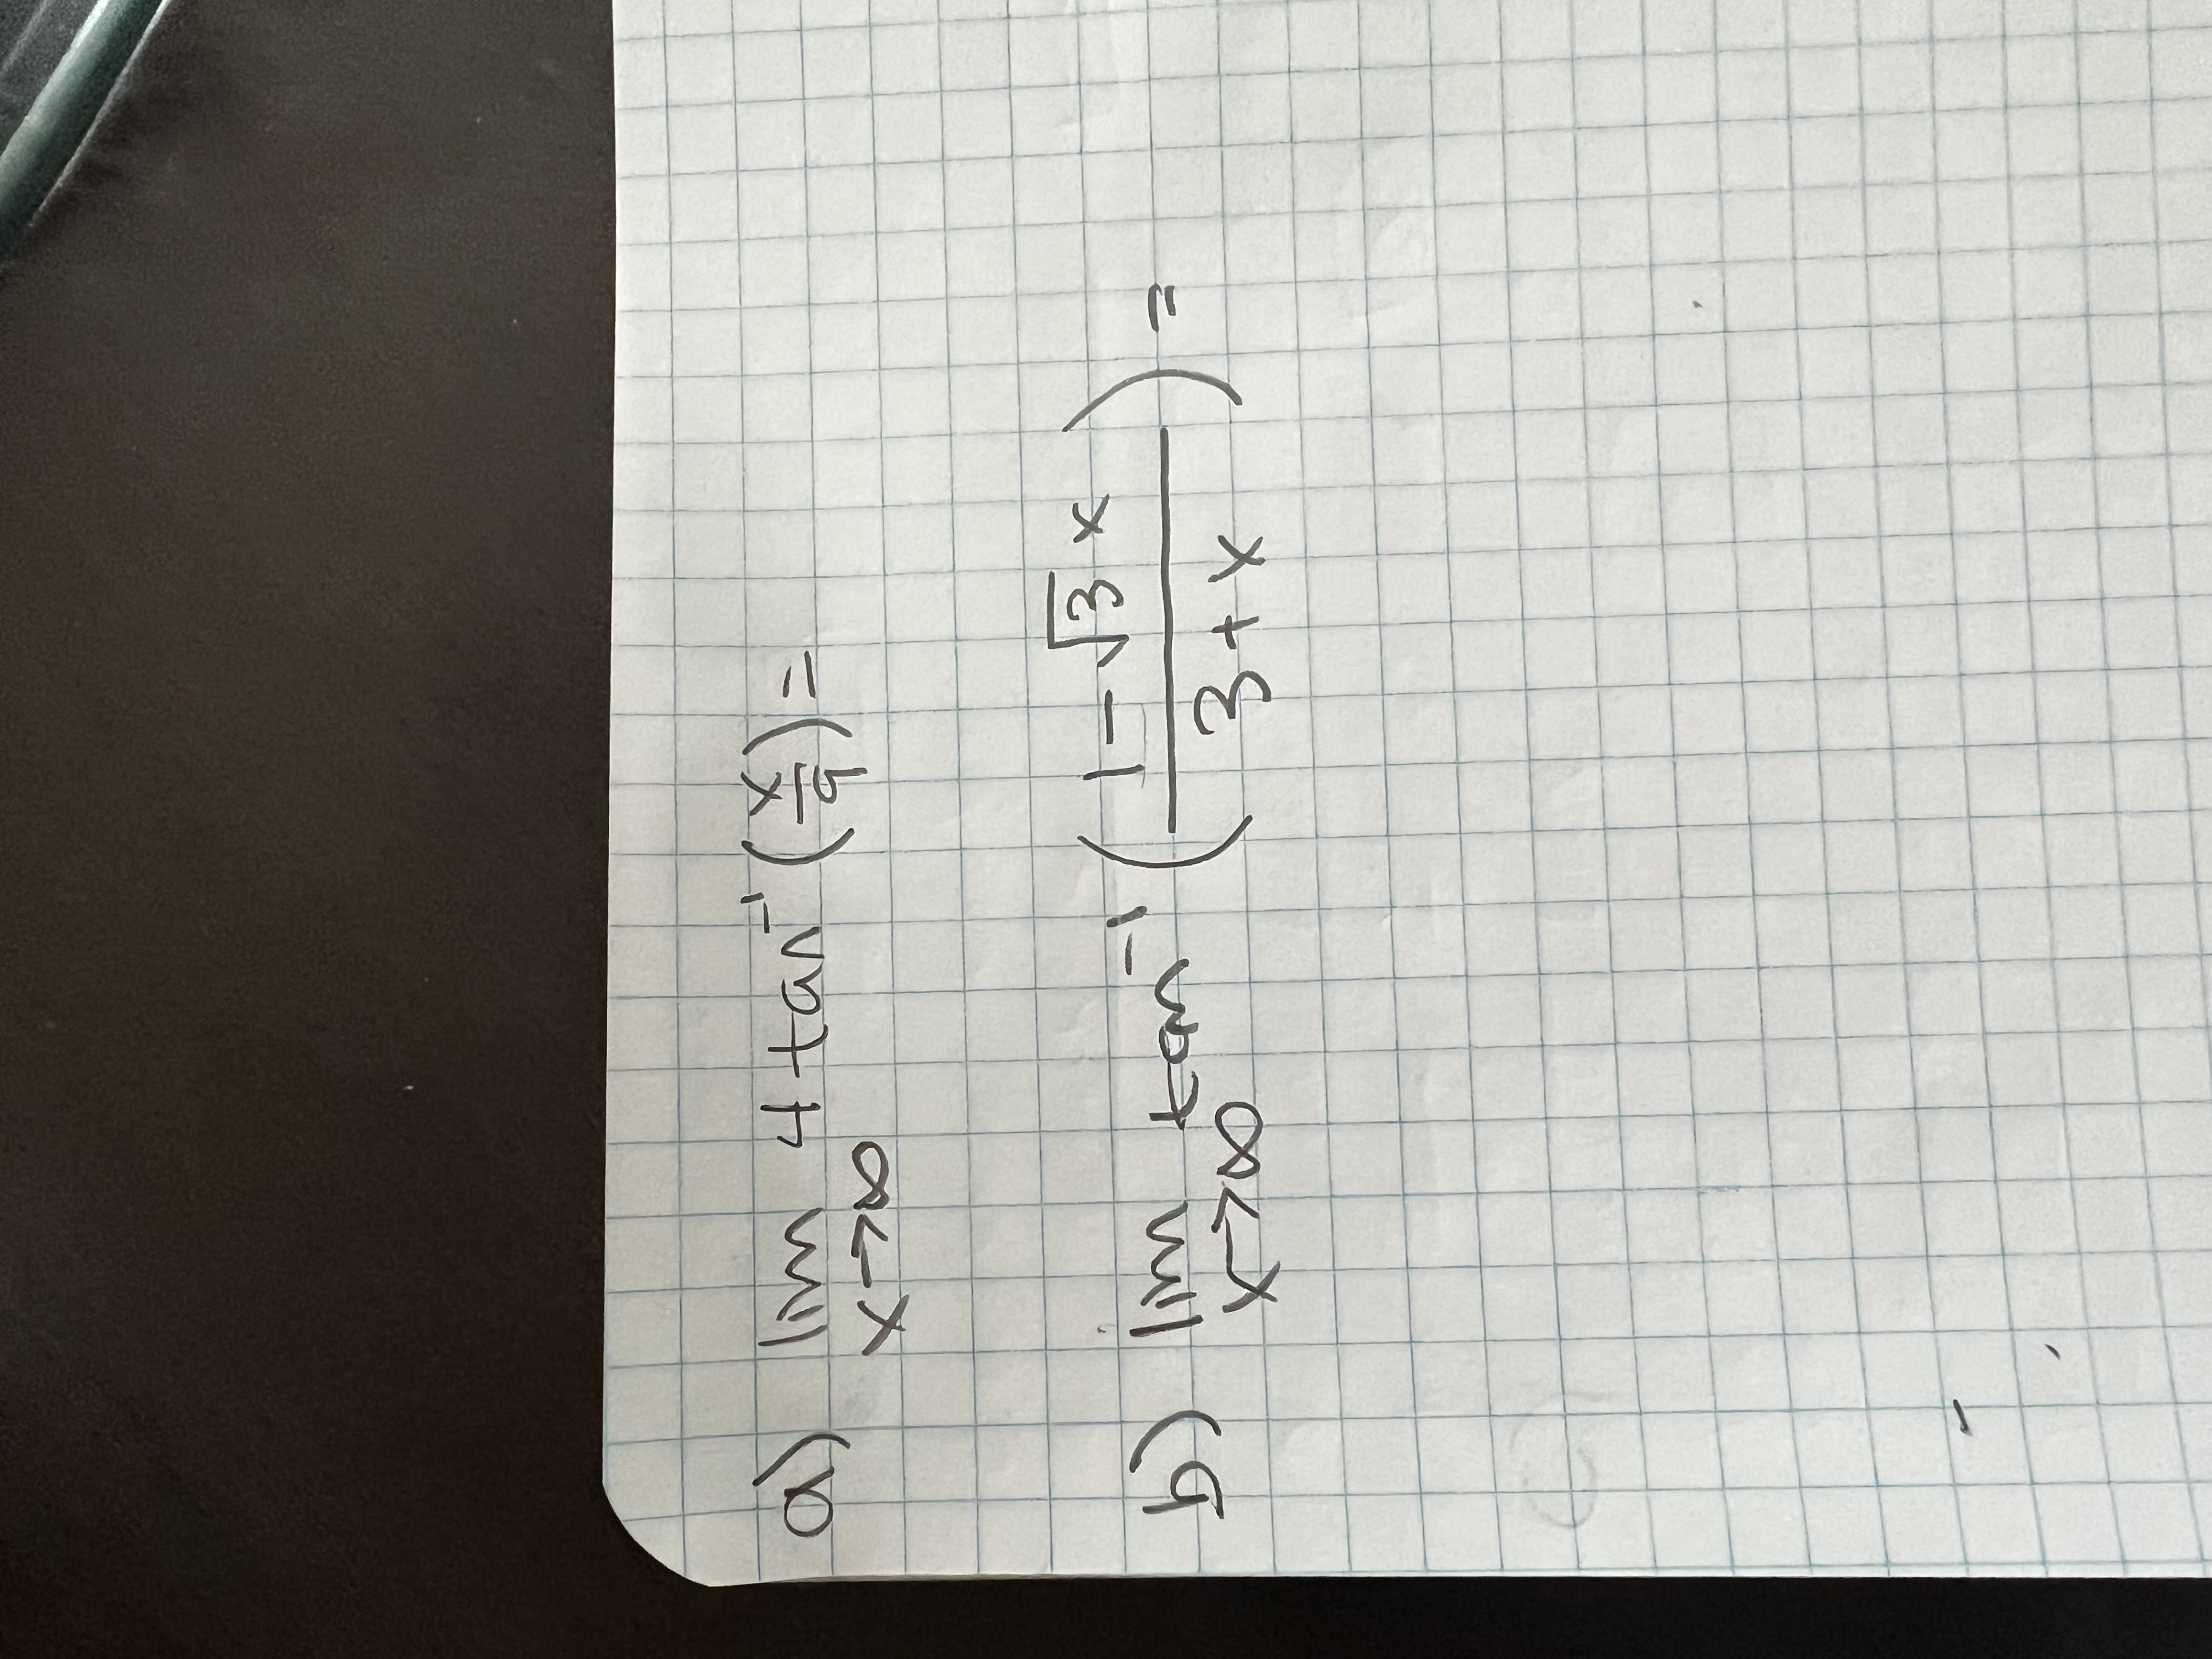 a) lim 4 tan⁻¹(x/9) =
x→∞
b) lim tan⁻¹((1-√3x)/(3+x)) =
x→∞